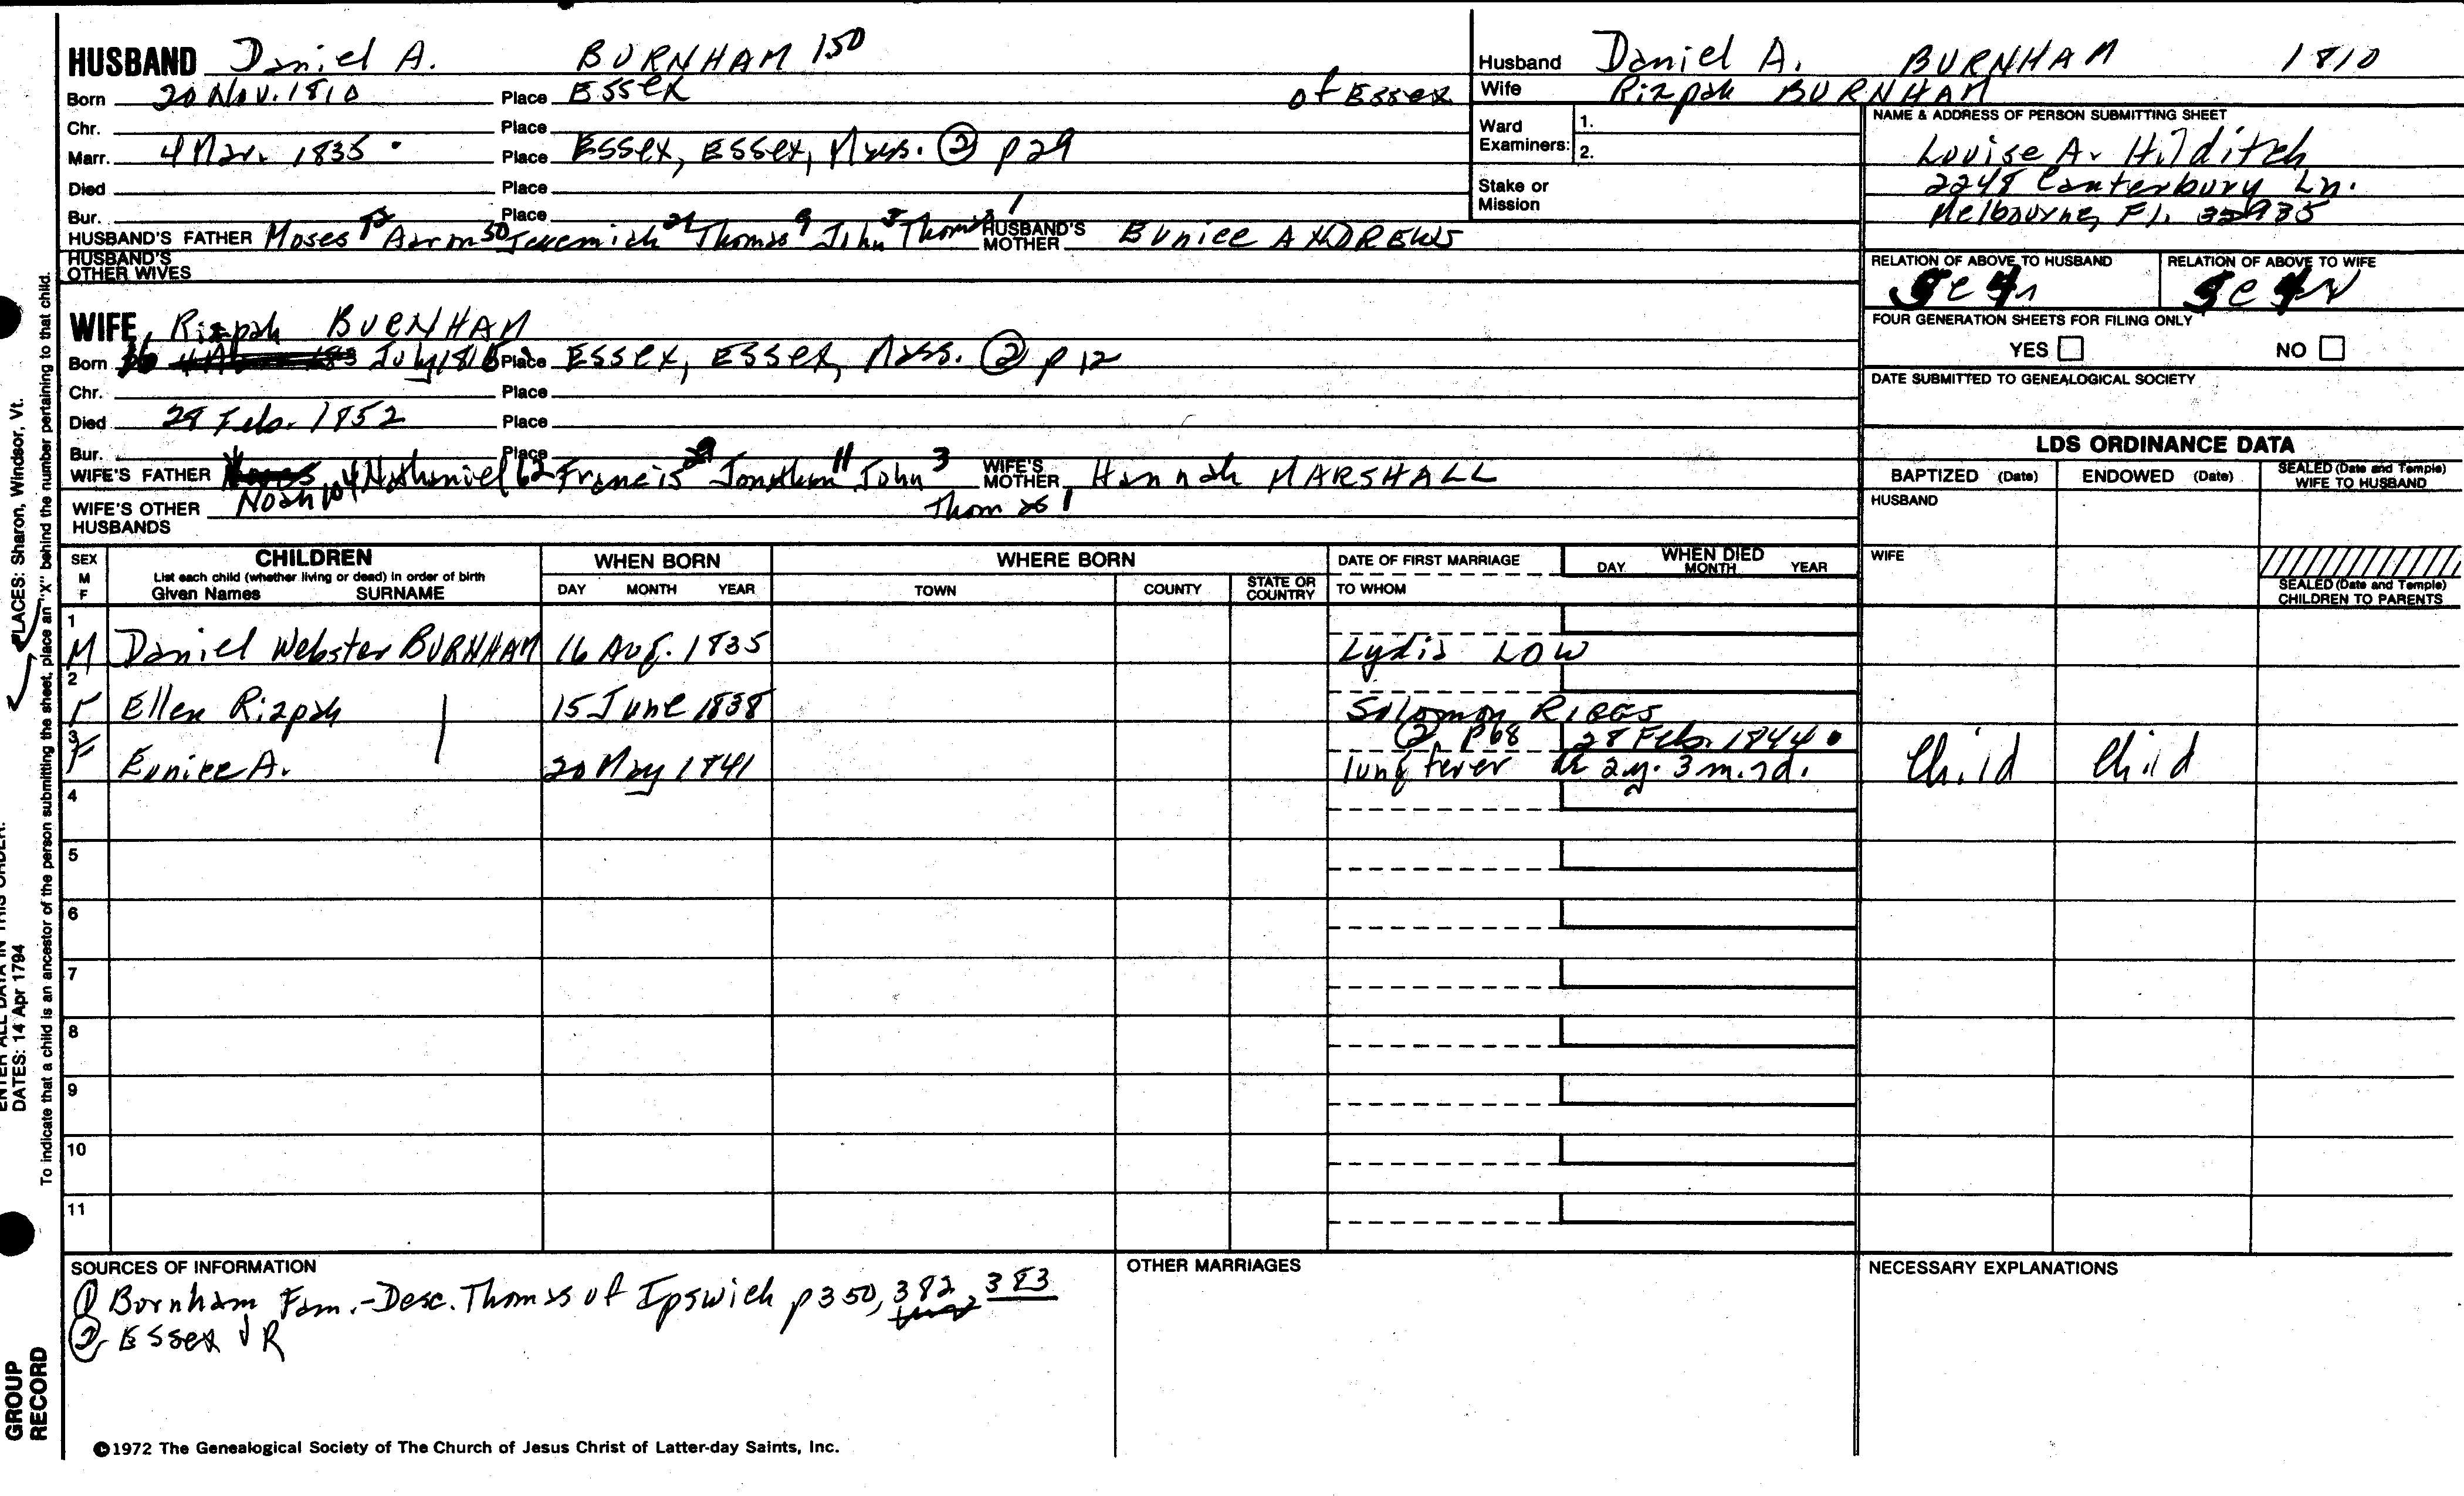 HUSBAND Daniel A. BURNHAM 150
Born 20 Nov. 1810 Place Essex of Essex
Chr. Place
Marr. 4 Mar. 1835 Place Essex, Essex, Mass. ② p 29
Died Place
Bur. Place
HUSBAND'S FATHER Moses Aaron 50 Jeremiah 24 Thomas 9 John 3 Thomas 1 HUSBAND'S MOTHER Eunice ANDREWS
HUSBAND'S OTHER WIVES
WIFE Rizpah BURNHAM
Born July 1816 Place Essex, Essex, Mass. ② p 12
Chr. Place
Died 28 Feb. 1852 Place
Bur. Place
WIFE'S FATHER Noah 104 Nathaniel 62 Francis 29 Jonathan 11 John 3 WIFE'S MOTHER Hannah MARSHALL
Thomas 1
WIFE'S OTHER HUSBANDS
Husband Daniel A. BURNHAM 1810
Wife Rizpah BURNHAM
Ward Examiners: 1.
2.
Stake or Mission
NAME & ADDRESS OF PERSON SUBMITTING SHEET
Louise A. Hilditch
2248 Canterbury Ln.
Melbourne, Fl. 32935
RELATION OF ABOVE TO HUSBAND RELATION OF ABOVE TO WIFE
FOUR GENERATION SHEETS FOR FILING ONLY
YES NO
DATE SUBMITTED TO GENEALOGICAL SOCIETY
LDS ORDINANCE DATA
BAPTIZED (Date) ENDOWED (Date) SEALED (Date and Temple) WIFE TO HUSBAND
HUSBAND
WIFE
SEALED (Date and Temple) CHILDREN TO PARENTS
SEX M F CHILDREN WHEN BORN WHERE BORN DATE OF FIRST MARRIAGE WHEN DIED
List each child (whether living or dead) in order of birth
Given Names SURNAME DAY MONTH YEAR TOWN COUNTY STATE OR COUNTRY TO WHOM DAY MONTH YEAR
1
M Daniel Webster BURNHAM 16 Aug. 1835 Lydia LOW
2
F Ellen Rizpah 15 June 1838 Solomon RIGGS
3 ② p68 28 Feb. 1844
F Eunice A. 20 May 1841 lung fever 2 y. 3 m. 7 d. Child Child
4
5
6
7
8
9
10
11
SOURCES OF INFORMATION
① Burnham Fam. - Desc. Thomas of Ipswich p 350, 382, 383
② Essex VR
OTHER MARRIAGES
NECESSARY EXPLANATIONS
©1972 The Genealogical Society of The Church of Jesus Christ of Latter-day Saints, Inc.
PLACES: Sharon, Windsor, Vt.
To indicate that a child is an ancestor of the person submitting the sheet, place an "X" behind the number pertaining to that child.
ENTER ALL DATA IN THIS ORDER:
DATES: 14 Apr 1794
GROUP RECORD